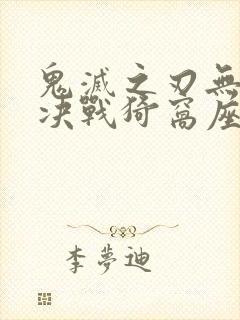 鬼滅之刃無
决戰猗窩座
李夢迪